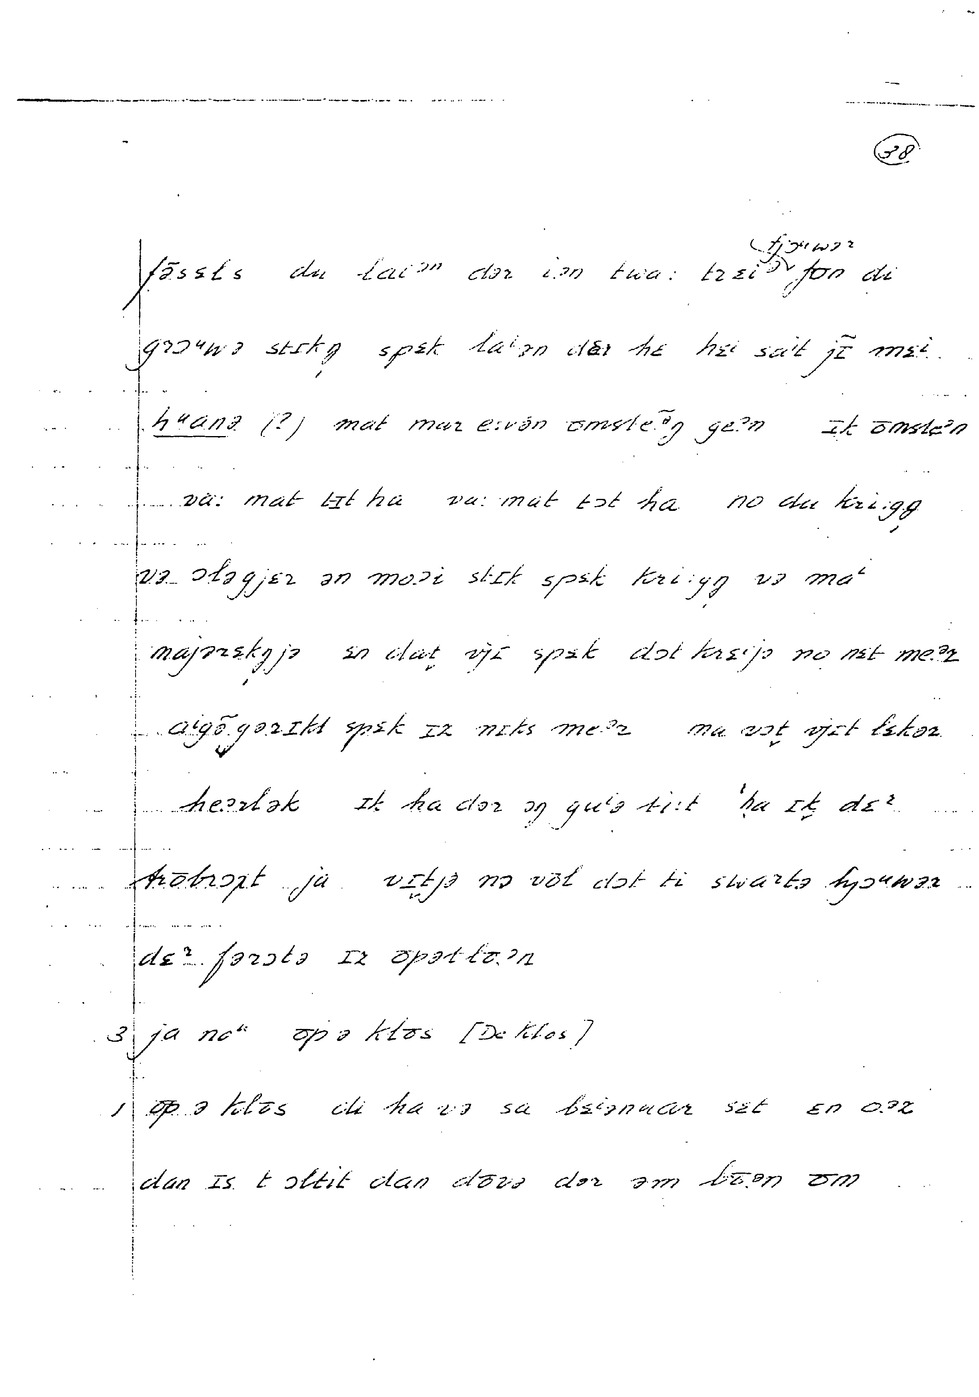 38
fjɔuwər
fōsɛls du laiən dər iən twa: trɛi fōn di
grɔuwə stɪkŋ̩ spɛk laiən dɛr hɛ hɛi sait jɪ̃ mɛi
huanə (?) mat mar e:vən ōmsle.̃əŋ ge.ən ɪk ōmsle.ən
va: mat tɪt ha va: mat tɔt ha no du kri:gŋ̩
və ɔləgjɛr ən moəi stɪk spɛk kri:gŋ̩ və mai
majərɛkŋ̩jə ɛn dat̬ vjɪ spɛk dɔt krɛijə no nɛt me.ər
aigōgərɪkt spɛk ɪz nɪks me.ər ma vɔt̬ vjɪt lɛkər
he.ərlək ɪk ha dər əŋ guiə ti:t ha ɪk̬ dɛr
trōbrɔxt ja vɪtjə no vōl dɔt ti swartə hjɔuwər
dɛr fərɔtə ɪz ōpəttō.ən
3 ja nou ōp ə klōs [De Klos]
1 ōp ə klōs di ha və sa bɛiənuar sɛt ɛn o.əz
dan ɪs t ɔltit dan dōvə dər əm bō.ən ōm